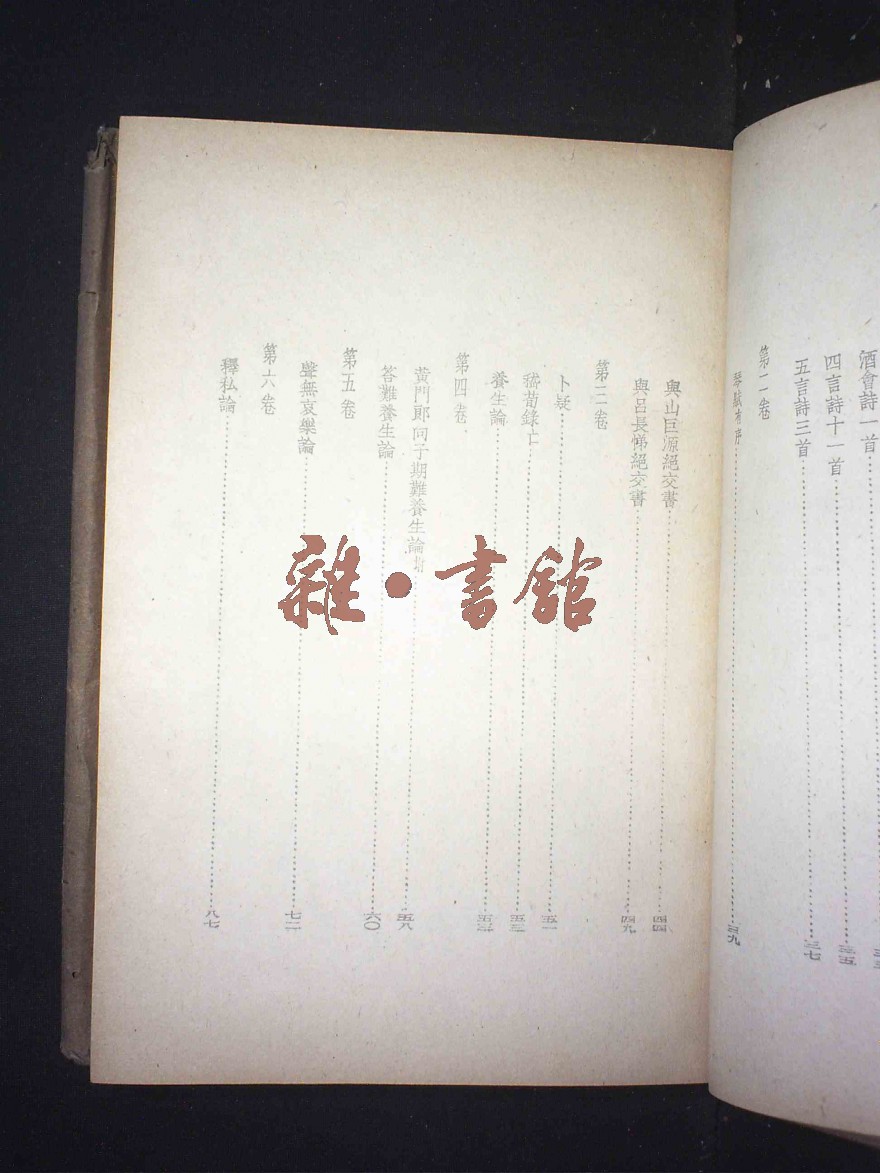 酒會詩一首
四言詩十一首 三五
五言詩三首 三七
第二卷
琴賦有序 三九
與山巨源絕交書 四四
與呂長悌絕交書 四九
第三卷
卜疑 五一
嵇荀錄亡 五三
養生論 五三
第四卷
黃門郎向子期難養生論 五八
答難養生論 六〇
第五卷
聲無哀樂論 七二
第六卷
釋私論 八七
雜·書館